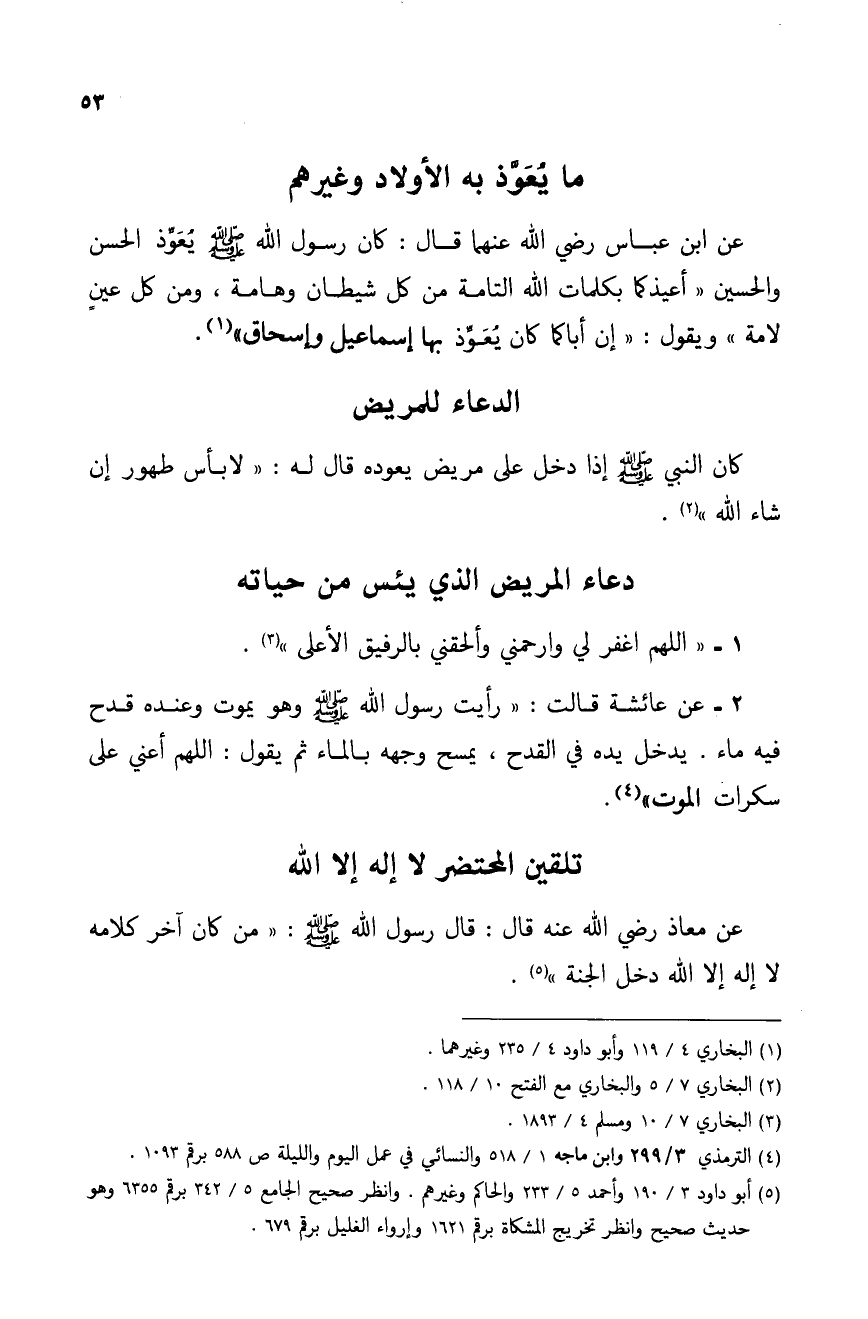 ٥٣
ما يُعَوَّذ به الأولاد وغيرهم
عن ابن عبـاس رضي الله عنهما قـال : كان رسـول الله ﷺ يُعَوِّذ الحسن
والحسين « أعيذكما بكلمات الله التامـة من كل شيطـان وهـامـة ، ومن كل عينٍ
لامة » ويقول : « إن أباكما كان يُعَـوِّذ بها إسماعيل وإسحاق»(١).
الدعاء للمريض
كان النبي ﷺ إذا دخل على مريض يعوده قال لـه : « لابـأس طهور إن
شاء الله »(٢) .
دعاء المريض الذي يئس من حياته
١ ـ « اللهم اغفر لي وارحمني وألحقني بالرفيق الأعلى »(٣) .
٢ ـ عن عائشـة قـالت : « رأيت رسول الله ﷺ وهو يموت وعنـده قـدح
فيه ماء . يدخل يده في القدح ، يمسح وجهه بـالمـاء ثم يقول : اللهم أعني على
سكرات الموت»(٤).
تلقين المحتضر لا إله إلا الله
عن معاذ رضي الله عنه قال : قال رسول الله ﷺ : « من كان آخر كلامه
لا إله إلا الله دخل الجنة »(٥) .
(١) البخاري ٤ / ١١٩ وأبو داود ٤ / ٢٣٥ وغيرهما .
(٢) البخاري ٧ / ٥ والبخاري مع الفتح ١٠ / ١١٨ .
(٣) البخاري ٧ / ١٠ ومسلم ٤ / ١٨٩٣ .
(٤) الترمذي ٢٩٩/٣ وابن ماجه ١ / ٥١٨ والنسائي في عمل اليوم والليلة ص ٥٨٨ برقم ١٠٩٣ .
(٥) أبو داود ٣ / ١٩٠ وأحمد ٥ / ٢٣٣ والحاكم وغيرهم . وانظر صحيح الجامع ٥ / ٣٤٢ برقم ٦٣٥٥ وهو
حديث صحيح وانظر تخريج المشكاة برقم ١٦٢١ وإرواء الغليل برقم ٦٧٩ .